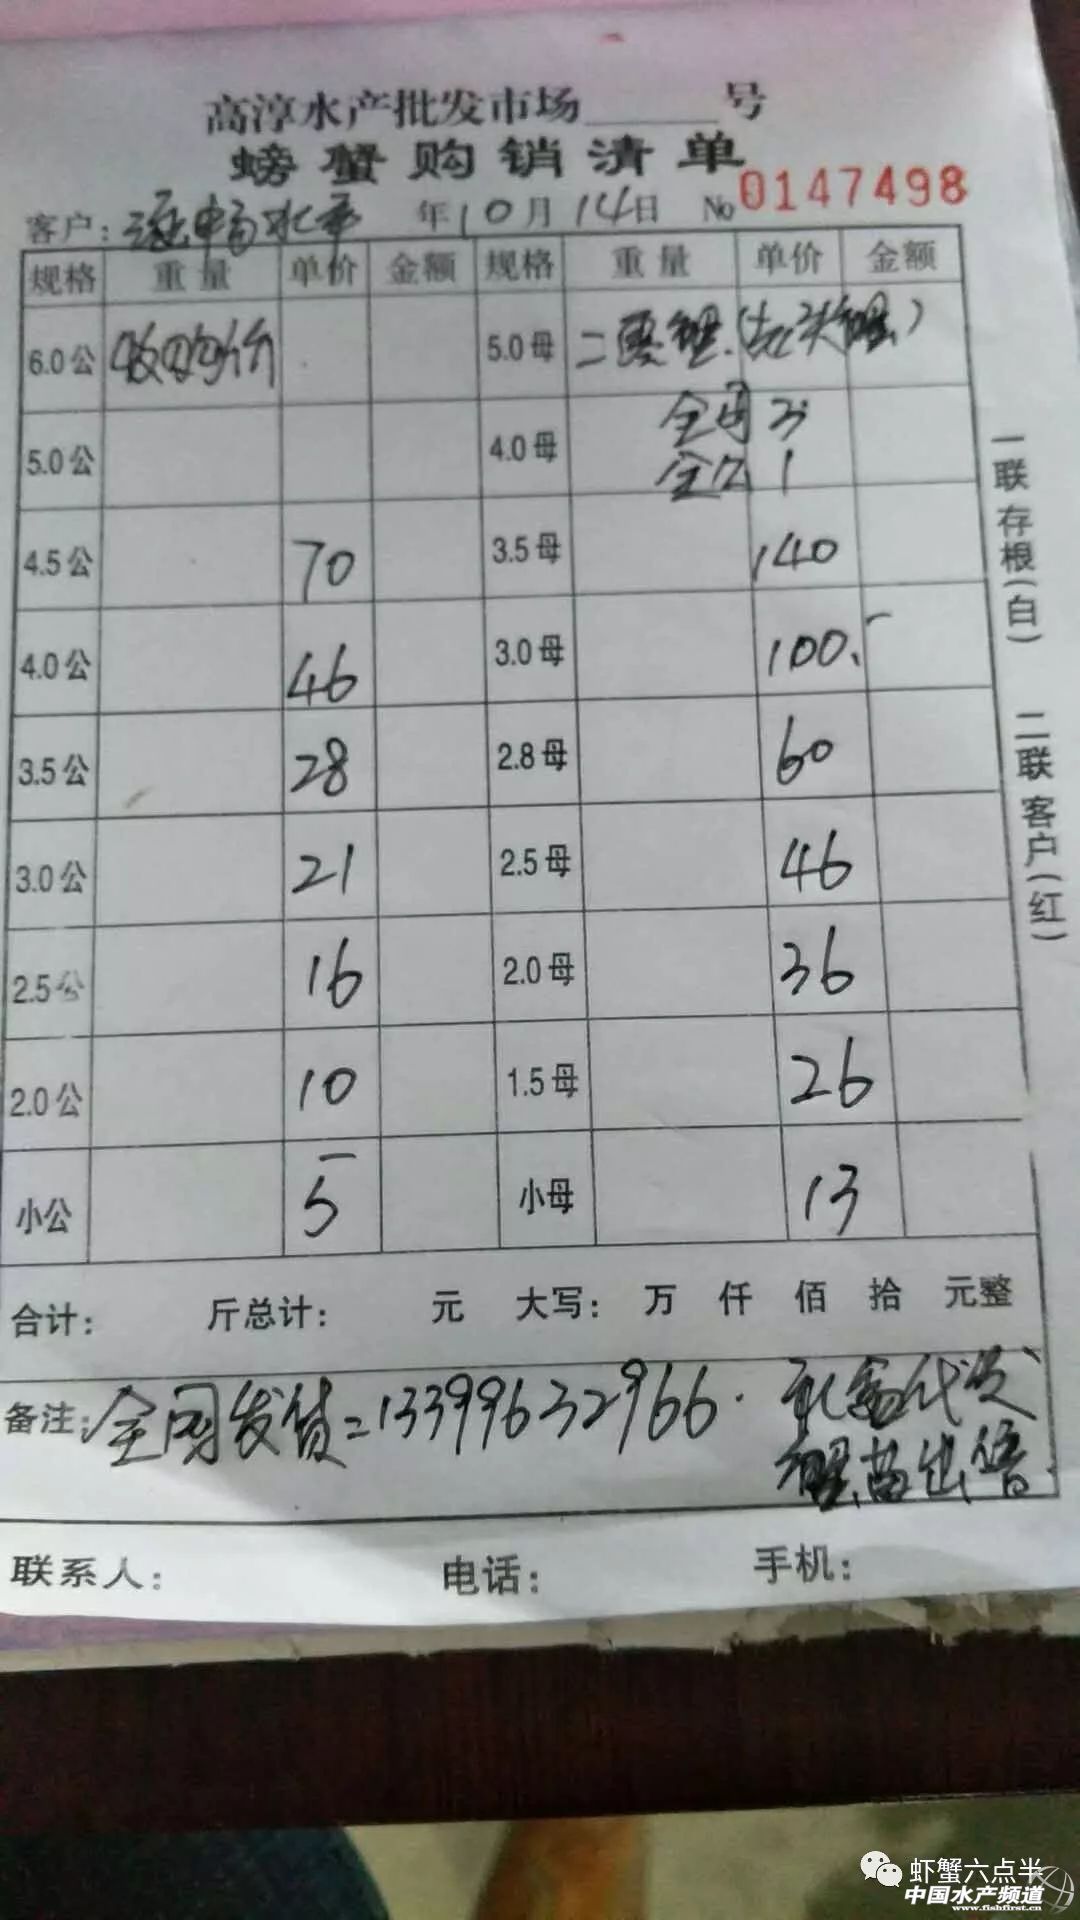 高淳水产批发市场______号
螃蟹购销清单
客户: 畅水产 年10月14日 No 0147498
规格 重量 单价 金额 规格 重量 单价 金额
6.0公 收购价 5.0母 二要蟹
5.0公 4.0母 全母 全公 1
4.5公 70 3.5母 140
4.0公 46 3.0母 100.
3.5公 28 2.8母 60
3.0公 21 2.5母 46
2.5公 16 2.0母 36
2.0公 10 1.5母 26
小公 5 小母 13
合计: 斤总计: 元 大写: 万 仟 佰 拾 元整
备注: 全网发货=13399632966.
蟹苗出售.
联系人: 电话: 手机:
一联存根(白) 二联客户(红)
虾蟹六点半
中国水产频道
www.fishfirst.cn